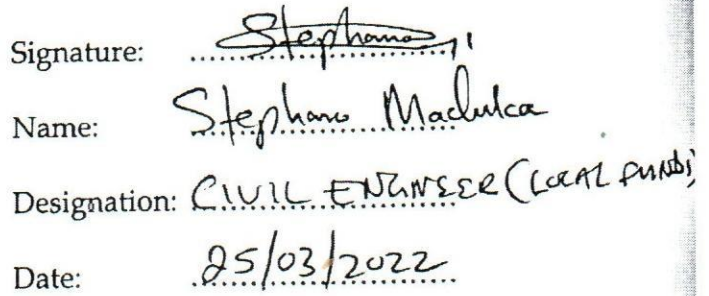 Signature: Stephano
Name: Stephano Maduka
Designation: CIVIL ENGINEER (LOCAL FUNDS)
Date: 25/03/2022